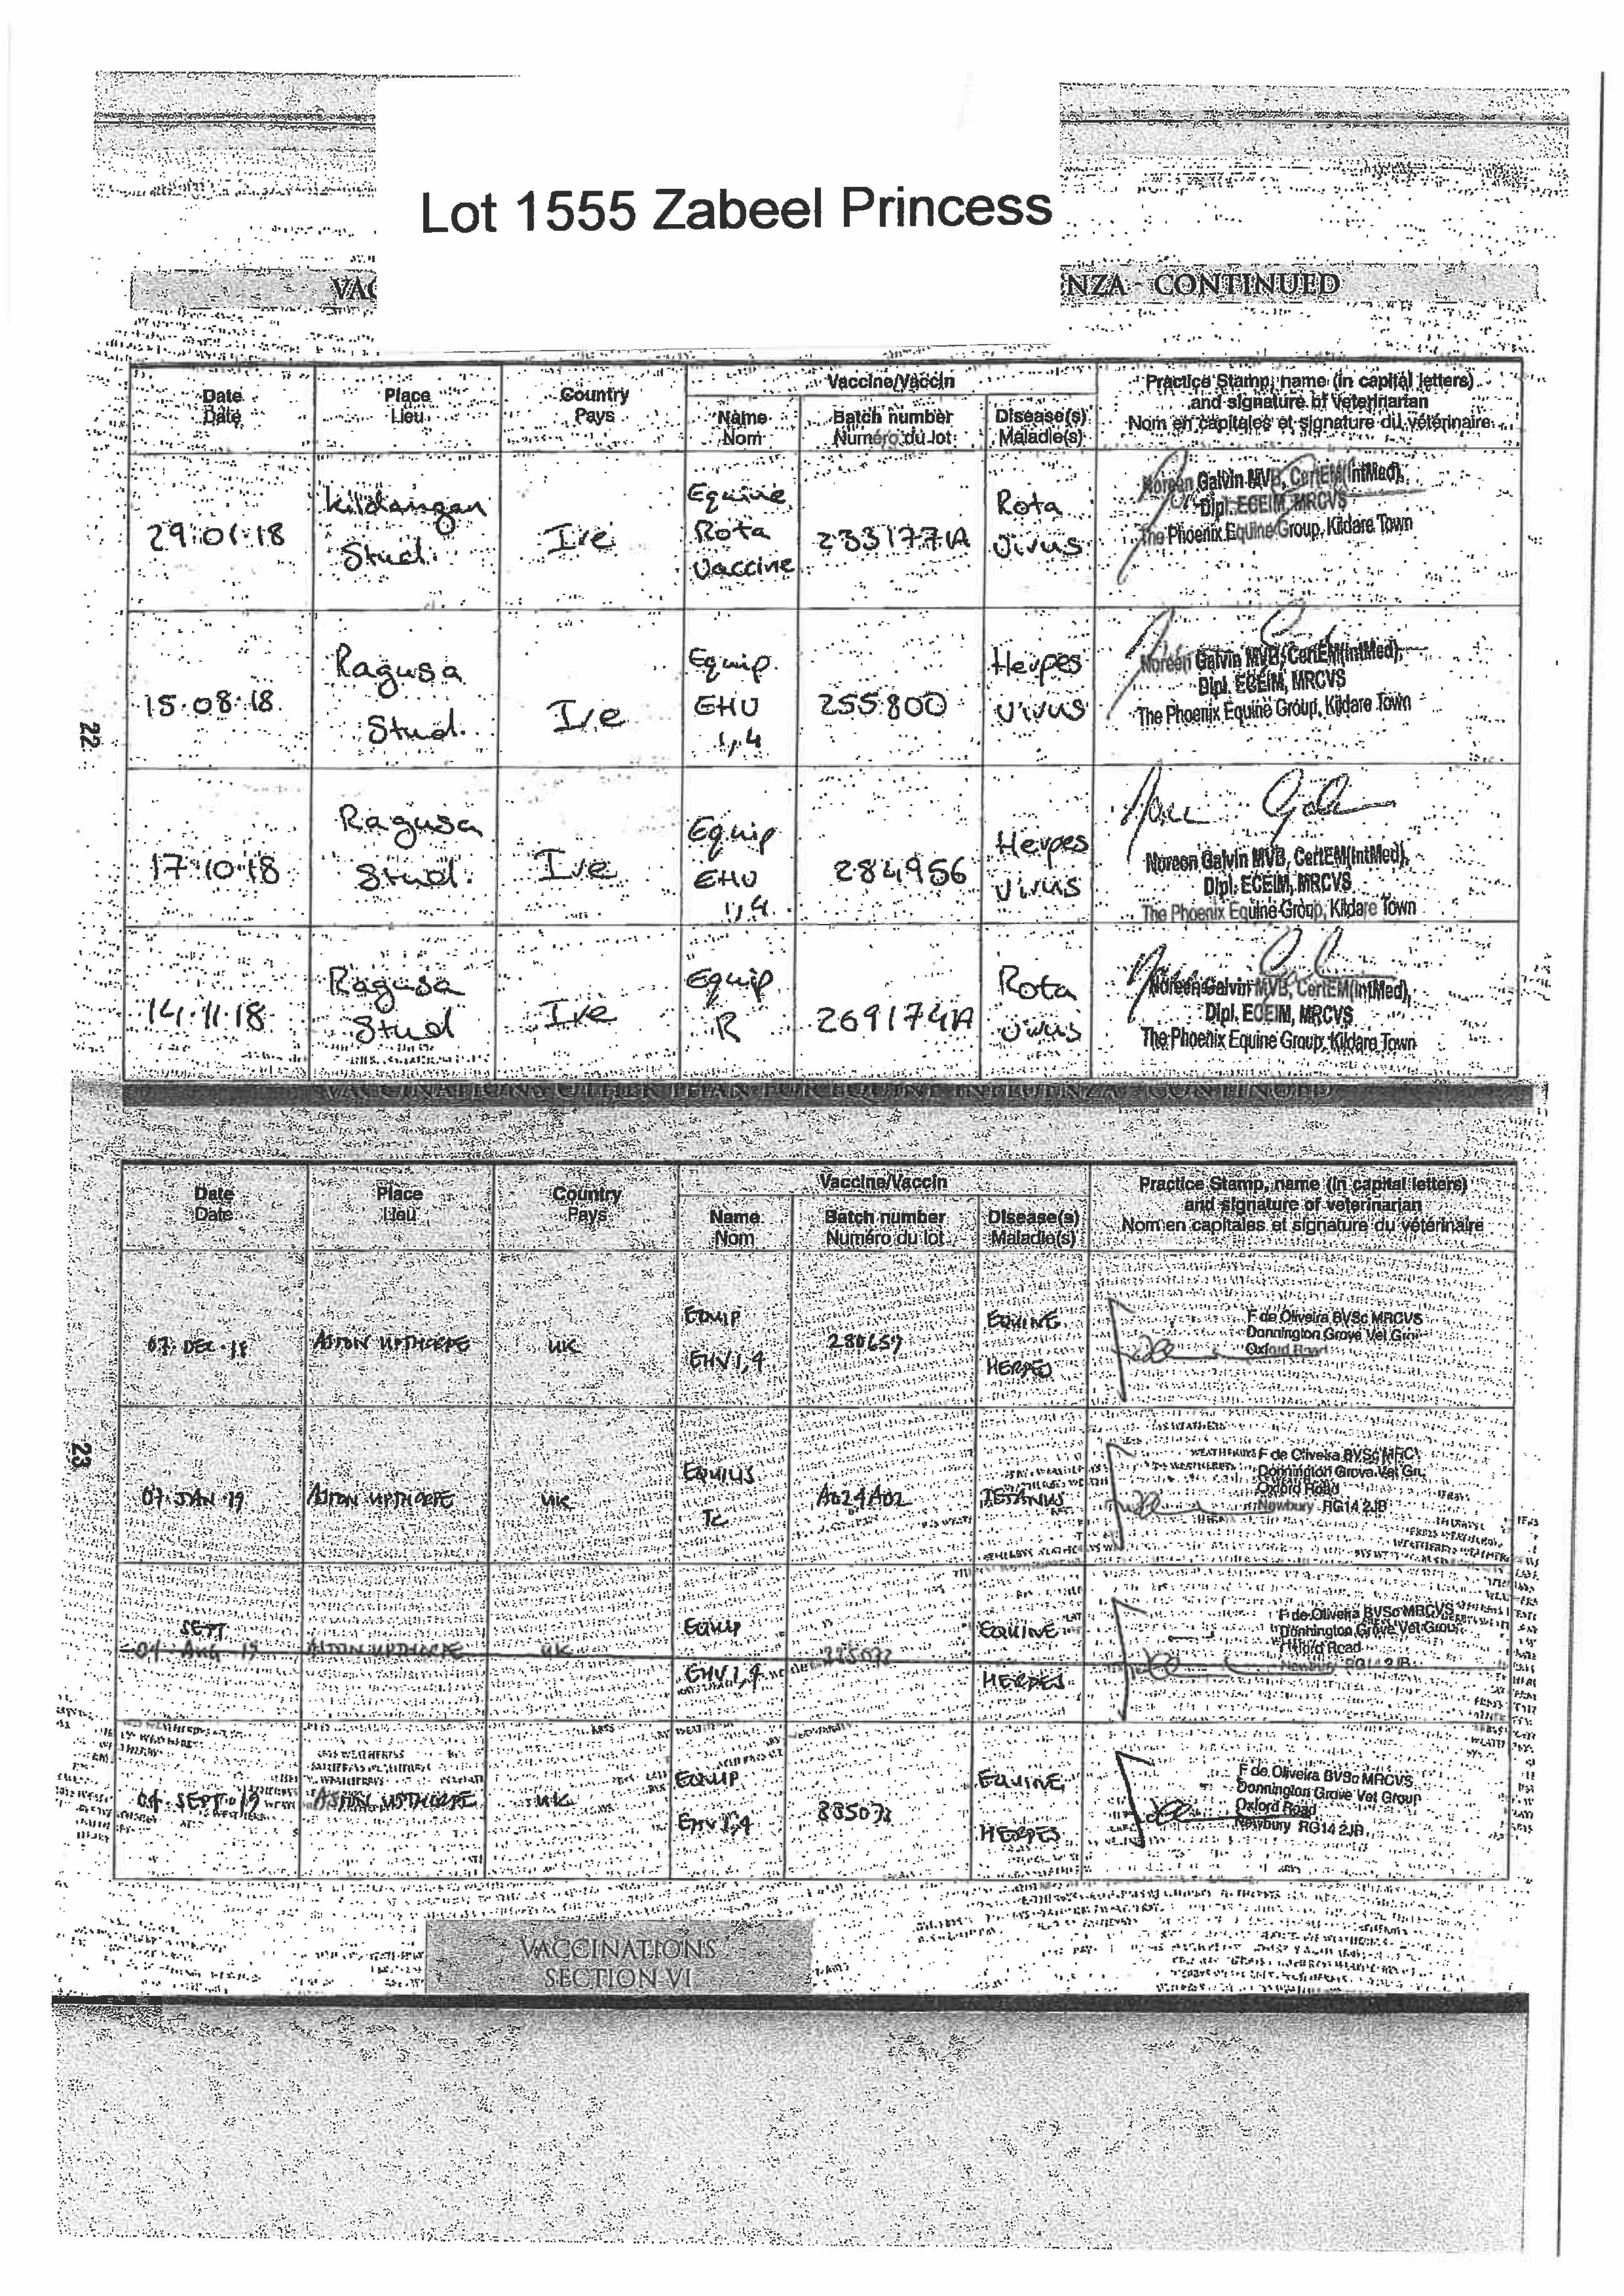 Lot 1555 Zabeel Princess
VAC
NZA - CONTINUED
Date
Date
Place
Lieu
Country
Pays
Vaccine/Vaccin
Name
Nom
Batch number
Numéro du lot
Disease(s)
Maladie(s)
Practice Stamp, name (in capital letters)
and signature of veterinarian
Nom en capitales et signature du vétérinaire
29.01.18
Kildangan
Stud.
Ire
Equine
Rota
Vaccine
233177A
Rota
Virus
Noreen Galvin MVB, CertEM(IntMed),
Dipl. ECEIM, MRCVS
The Phoenix Equine Group, Kildare Town
15.08.18
Ragusa
Stud.
Ire
Equip
EHV
1,4
255800
Herpes
Virus
Noreen Galvin MVB, CertEM(IntMed),
Dipl. ECEIM, MRCVS
The Phoenix Equine Group, Kildare Town
22
17.10.18
Ragusa
Stud.
Ire
Equip
EHV
1,4
284956
Herpes
Virus
Noreen Galvin MVB, CertEM(IntMed),
Dipl. ECEIM, MRCVS
The Phoenix Equine Group, Kildare Town
14.11.18
Ragusa
Stud
Ire
Equip
R
269174A
Rota
Virus
Noreen Galvin MVB, CertEM(IntMed),
Dipl. ECEIM, MRCVS
The Phoenix Equine Group, Kildare Town
VACCINATIONS OTHER THAN FOR EQUINE INFLUENZA - CONTINUED
Date
Date
Place
Lieu
Country
Pays
Vaccine/Vaccin
Name
Nom
Batch number
Numéro du lot
Disease(s)
Maladie(s)
Practice Stamp, name (in capital letters)
and signature of veterinarian
Nom en capitales et signature du vétérinaire
07. DEC. 18
ASTON UPTHORPE
UK
EQUIP
EHV 1,4
280657
EQUINE
HERPES
F de Oliveira BVSc MRCVS
Donnington Grove Vet Gro
Oxford Road
23
07. JAN. 19
ASTON UPTHORPE
UK
EQUILIS
Te
A024A02
TETANUS
F de Oliveira BVSc MRCV
Donnington Grove Vet Gr
Oxford Road
Newbury RG14 2JB
SEPT
04 AUG 19
ASTON UPTHORPE
UK
EQUIP
EHV 1,4
335072
EQUINE
HERPES
F de Oliveira BVSc MRCVS
Donnington Grove Vet Group
Oxford Road
Newbury RG14 2JB
04. SEPT. 19
ASTON UPTHORPE
UK
EQUIP
EHV 1,4
335072
EQUINE
HERPES
F de Oliveira BVSc MRCVS
Donnington Grove Vet Group
Oxford Road
Newbury RG14 2JB
VACCINATIONS
SECTION VI